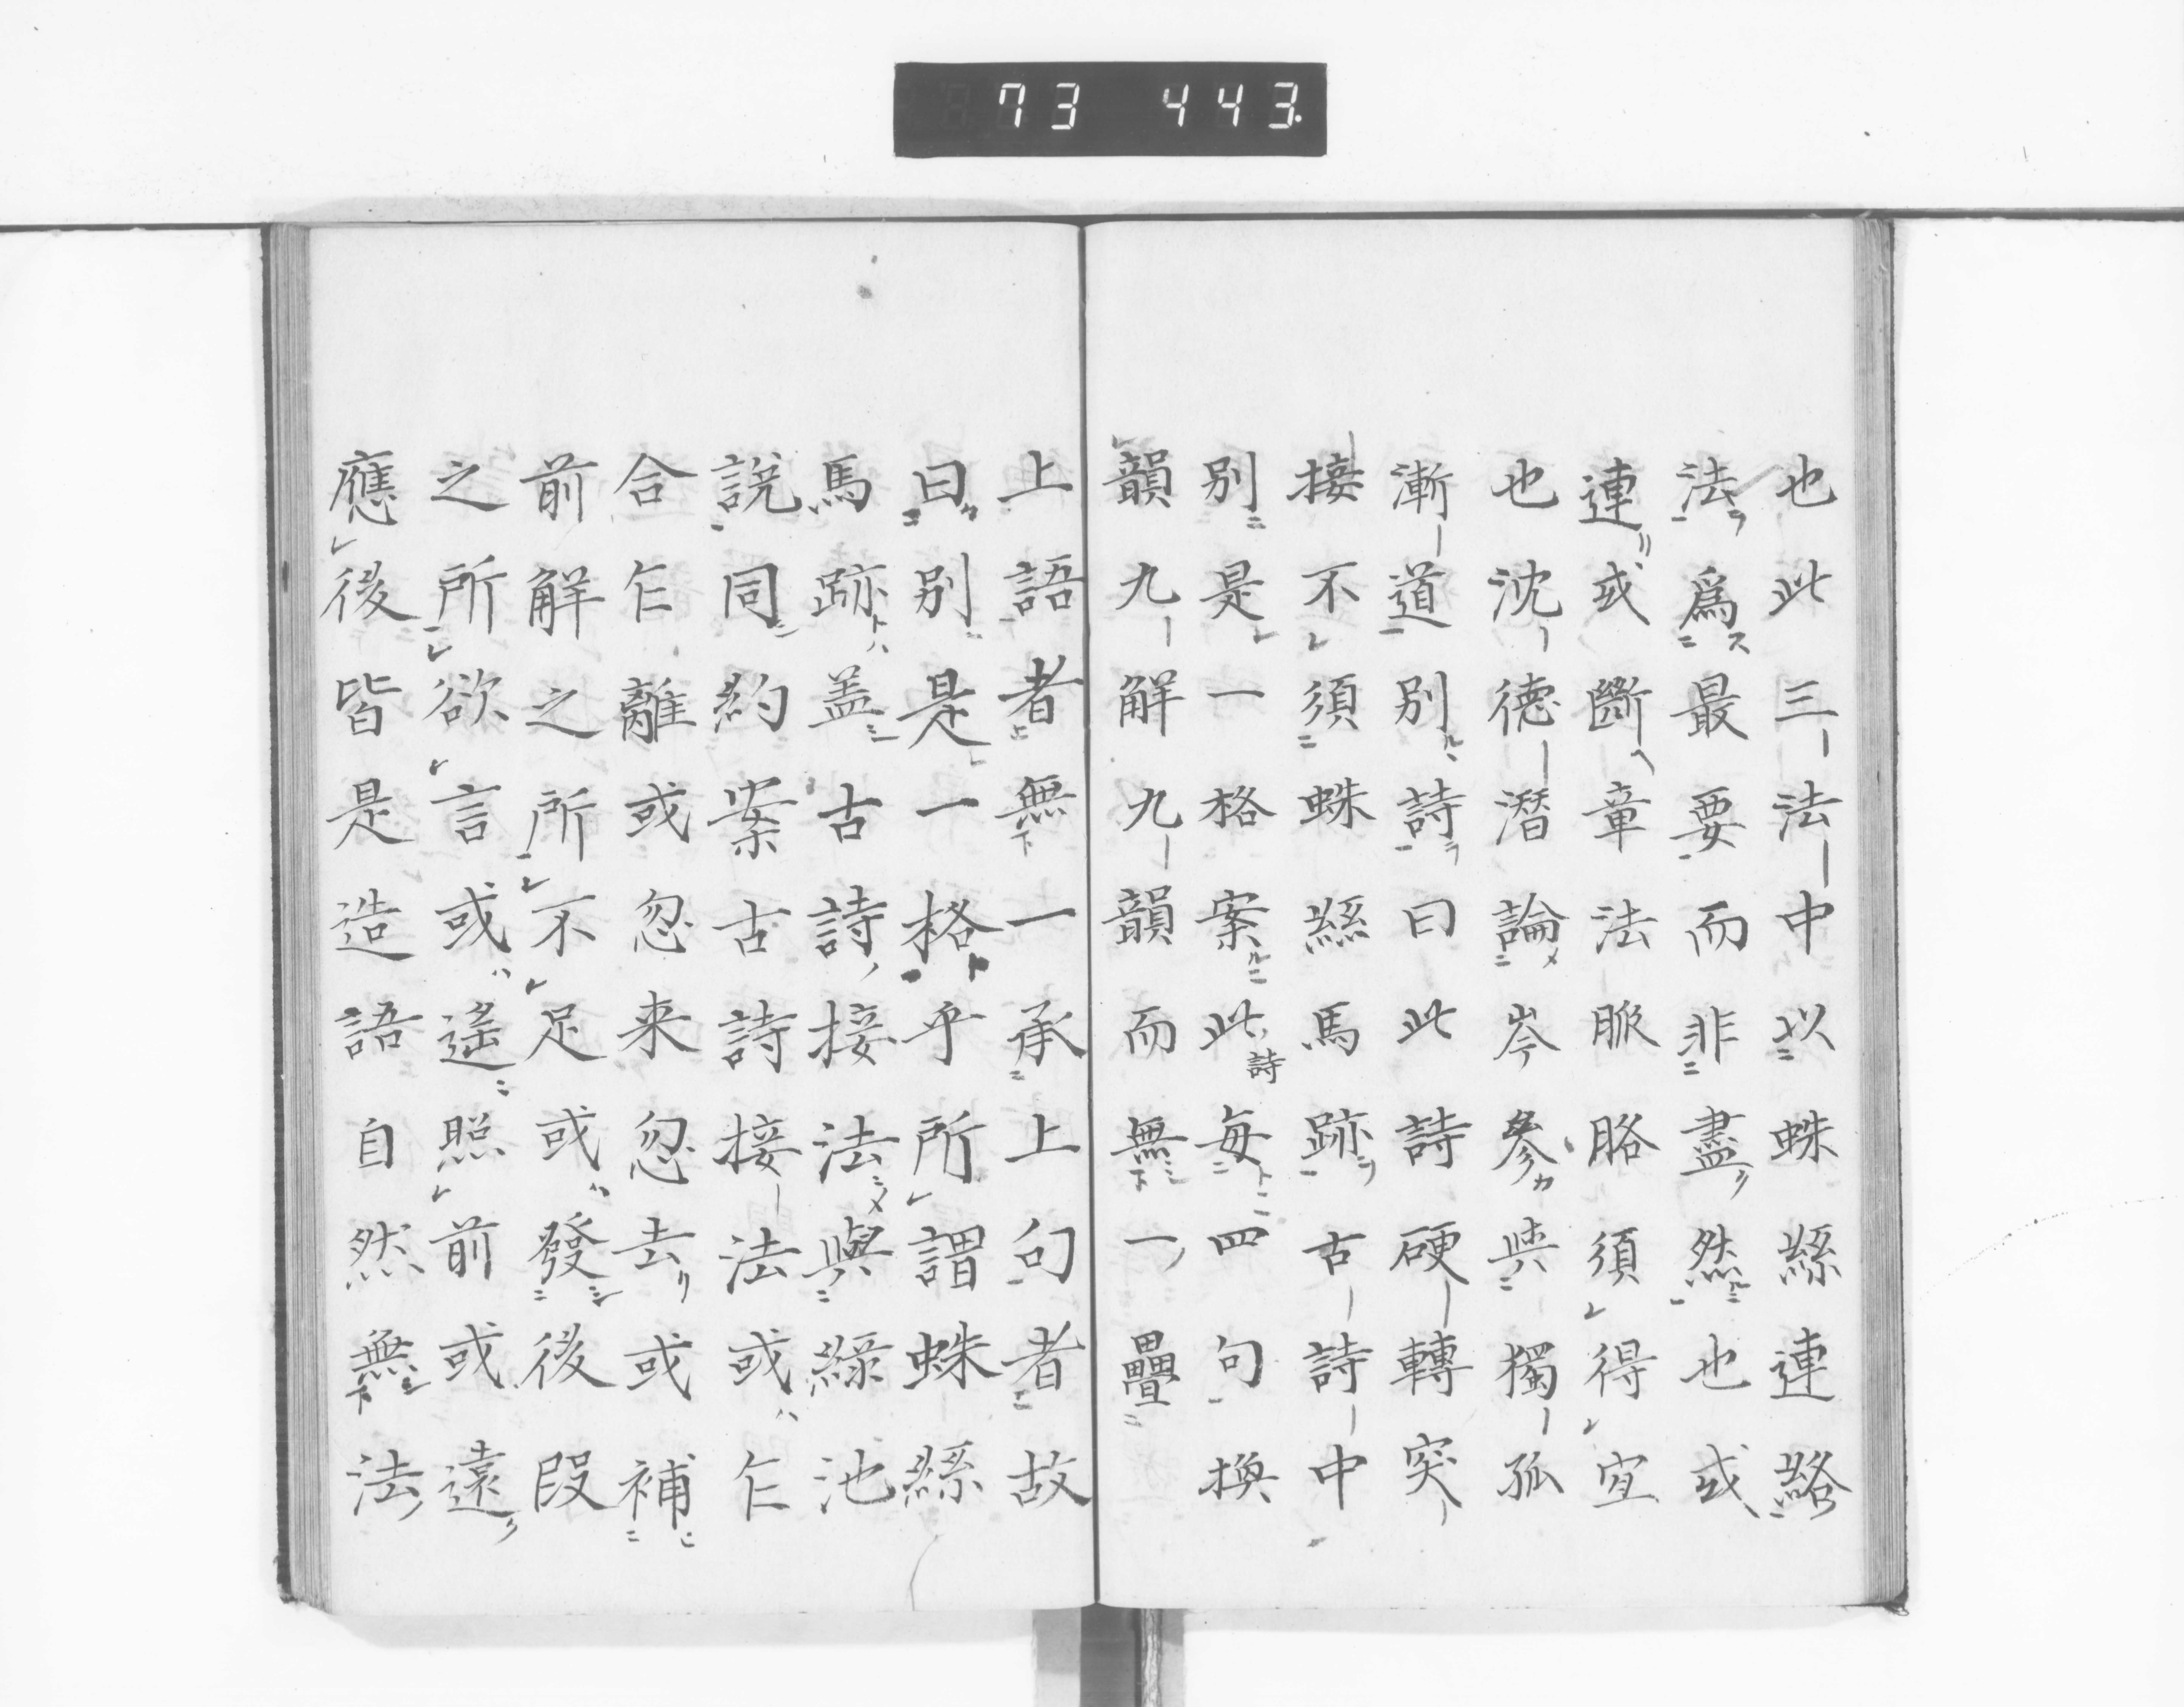 73 443.
也此三法中以蛛絲連絡
法爲最要而非盡然也或
連或斷章法脈胳須得宜
也沈德潛論岑參與獨孤
漸道別詩曰此詩硬轉突
接不須蛛絲馬跡古詩中
別是一格案此詩每四句換
韻九解九韻而無一疊
上語者無一承上句者故
曰別是一格乎所謂蛛絲
馬跡盖古詩接法與綠池
説同約案古詩接法或乍
合乍離或忽来忽去或補
前解之所不足或發後段
之所欲言或遙照前或遠
應後皆是造語自然無法